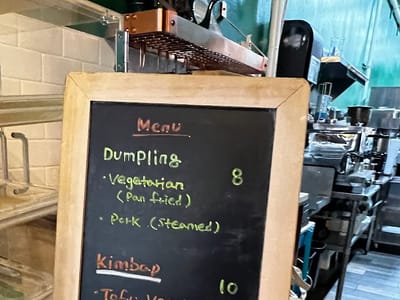 Menu
Dumpling
· Vegetarian 8
(Pan fried)
· Pork (Steamed)
Kimbap
10
· Tofu